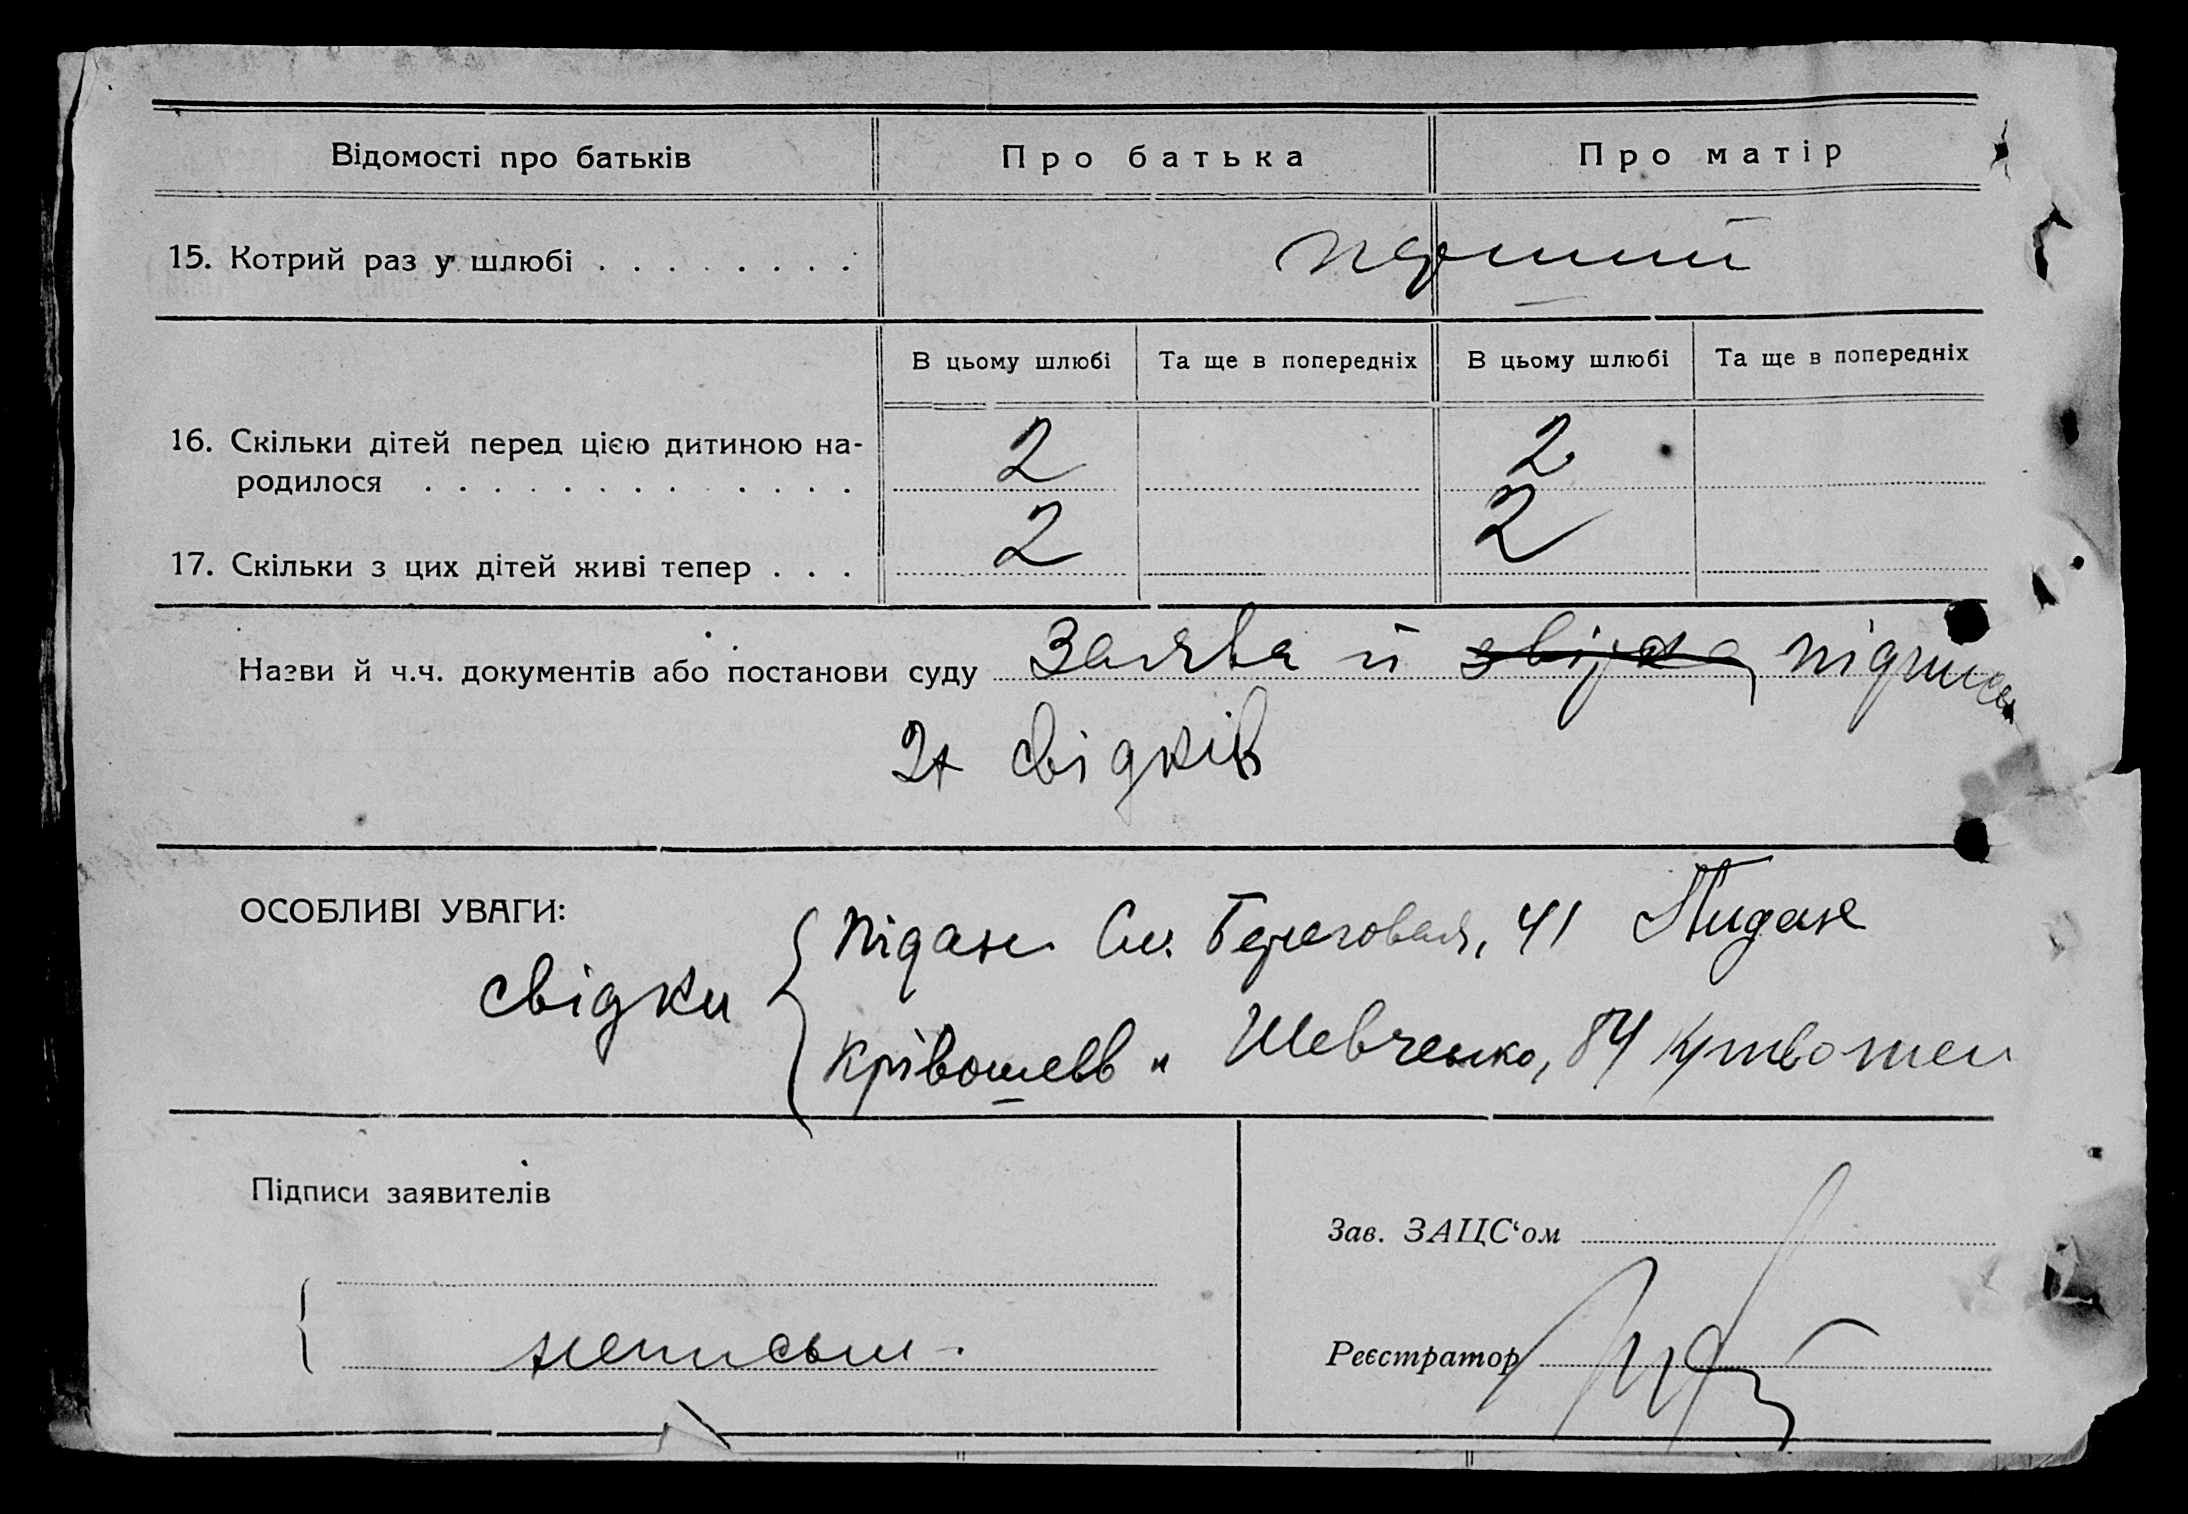 Відомості про батьків Про батька Про матір
15. Котрий раз у шлюбі . . . . . . . . перший
В цьому шлюбі Та ще в попередніх В цьому шлюбі Та ще в попередніх
16. Скільки дітей перед цією дитиною на-
родилося . . . . . . . . . . . . . 2 2
17. Скільки з цих дітей живі тепер . . . 2 2
Назви й ч.ч. документів або постанови суду Заява й підписи
2х свідків
ОСОБЛИВІ УВАГИ:
свідки
Підан Ст. Береговая, 41 Пидан
Крівошеев " Шевченко, 84 Кривошеи
Підписи заявителів
Зав. ЗАЦС'ом
неписьм.
Реєстратор